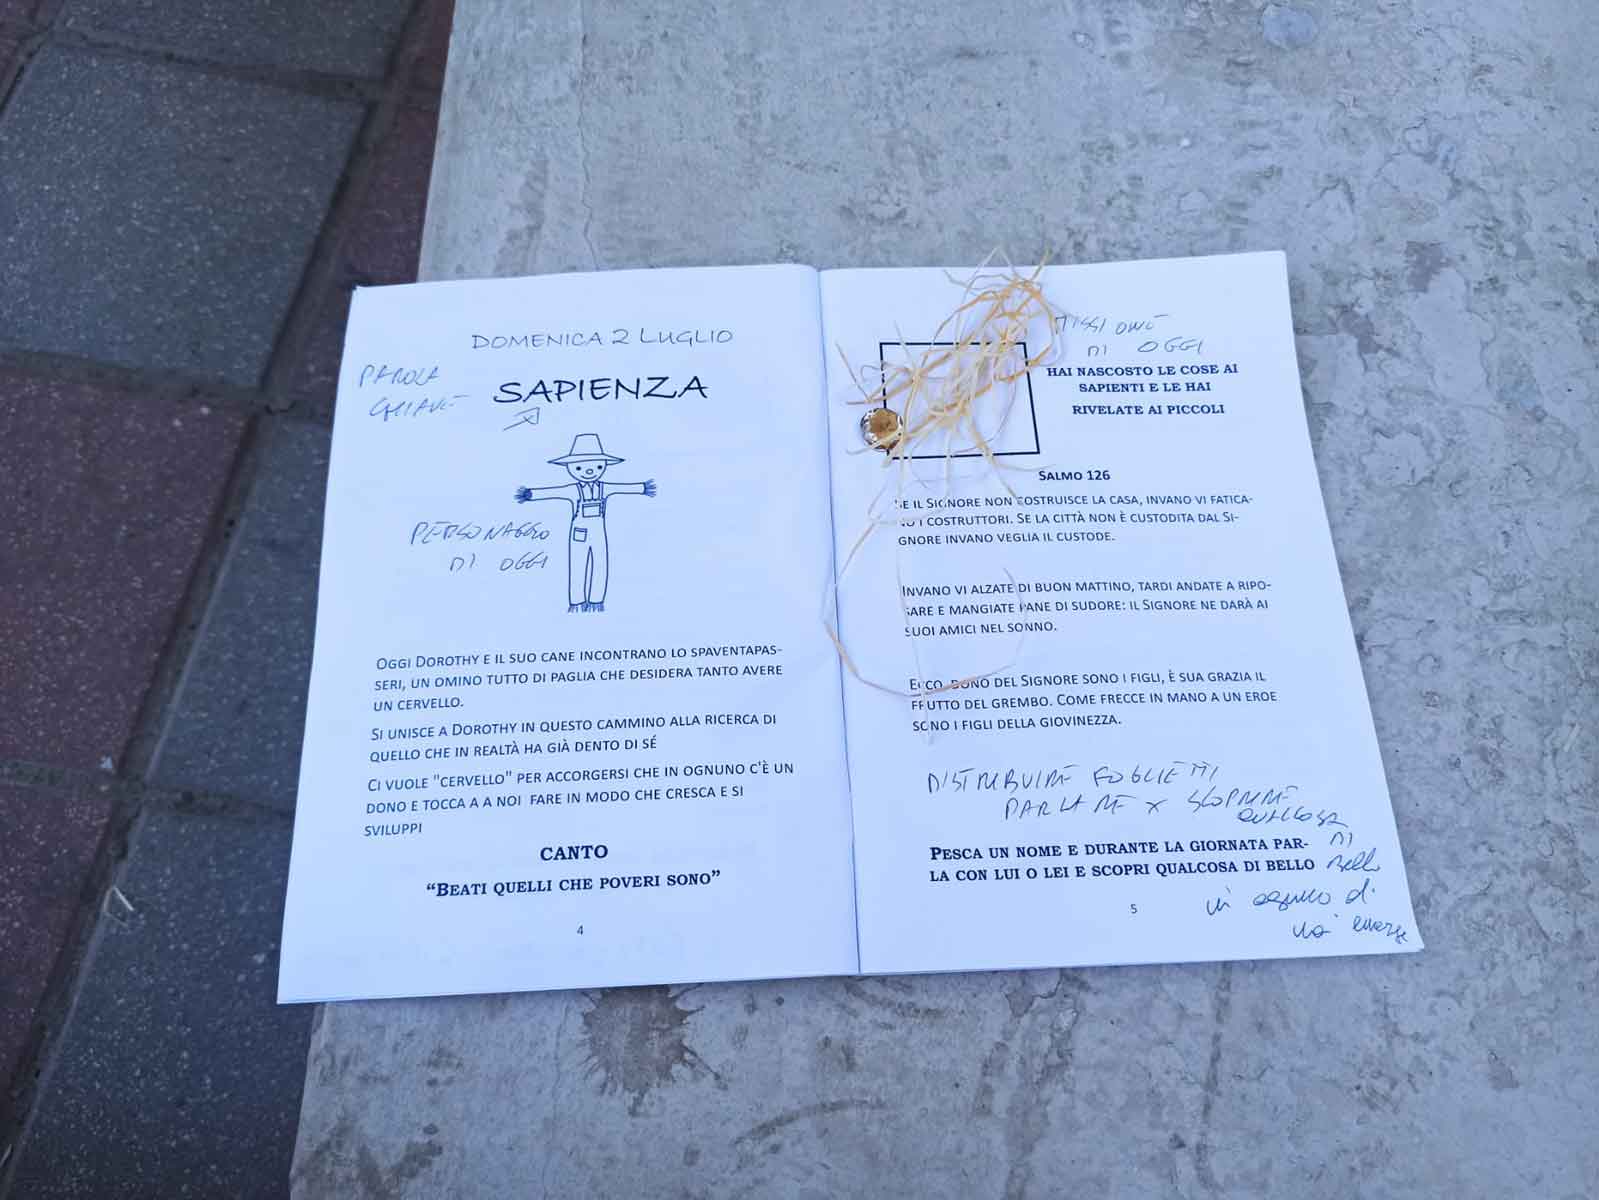 DOMENICA 2 LUGLIO
PAROLA
CHIAVE
SAPIENZA
PERSONAGGIO
DI OGGI
OGGI DOROTHY E IL SUO CANE INCONTRANO LO SPAVENTAPAS-
SERI, UN OMINO TUTTO DI PAGLIA CHE DESIDERA TANTO AVERE
UN CERVELLO.
SI UNISCE A DOROTHY IN QUESTO CAMMINO ALLA RICERCA DI
QUELLO CHE IN REALTÀ HA GIÀ DENTO DI SÉ
CI VUOLE "CERVELLO" PER ACCORGERSI CHE IN OGNUNO C'È UN
DONO E TOCCA A A NOI FARE IN MODO CHE CRESCA E SI
SVILUPPI
CANTO
“BEATI QUELLI CHE POVERI SONO”
4
MISSIONE
DI OGGI
HAI NASCOSTO LE COSE AI
SAPIENTI E LE HAI
RIVELATE AI PICCOLI
SALMO 126
SE IL SIGNORE NON COSTRUISCE LA CASA, INVANO VI FATICA-
NO I COSTRUTTORI. SE LA CITTÀ NON È CUSTODITA DAL SI-
GNORE INVANO VEGLIA IL CUSTODE.
INVANO VI ALZATE DI BUON MATTINO, TARDI ANDATE A RIPO-
SARE E MANGIATE PANE DI SUDORE: IL SIGNORE NE DARÀ AI
SUOI AMICI NEL SONNO.
ECCO, DONO DEL SIGNORE SONO I FIGLI, È SUA GRAZIA IL
FRUTTO DEL GREMBO. COME FRECCE IN MANO A UN EROE
SONO I FIGLI DELLA GIOVINEZZA.
DISTRIBUIRE FOGLIETTI
PARLARE X SCOPRIRE
QUALCOSA
DI
Bello
PESCA UN NOME E DURANTE LA GIORNATA PAR-
LA CON LUI O LEI E SCOPRI QUALCOSA DI BELLO
in ognuno di
noi emerge
5